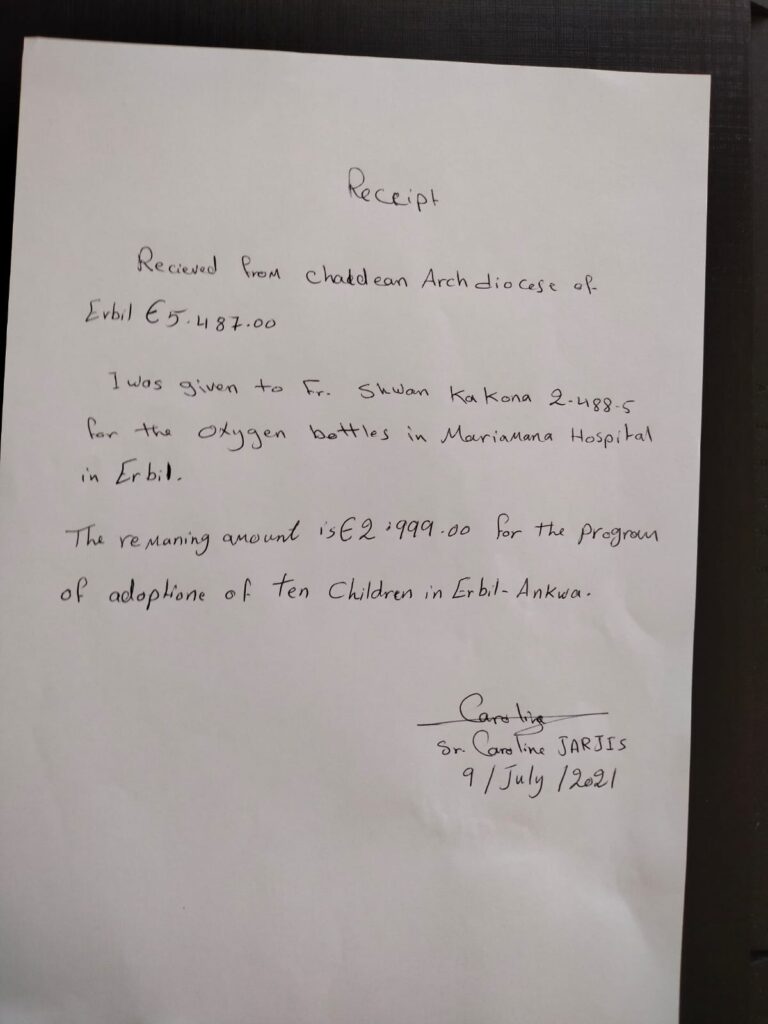 Receipt
Recieved from Chaldean Archdiocese of
Erbil €5.487.00
I was given to Fr. Shwan Kakona 2.488.5
for the Oxygen bottles in Mariamana Hospital
in Erbil.
The remaning amount is €2.999.00 for the program
of adoptione of ten Children in Erbil-Ankwa.
Caroline
Sr. Caroline JARJIS
9/July/2021